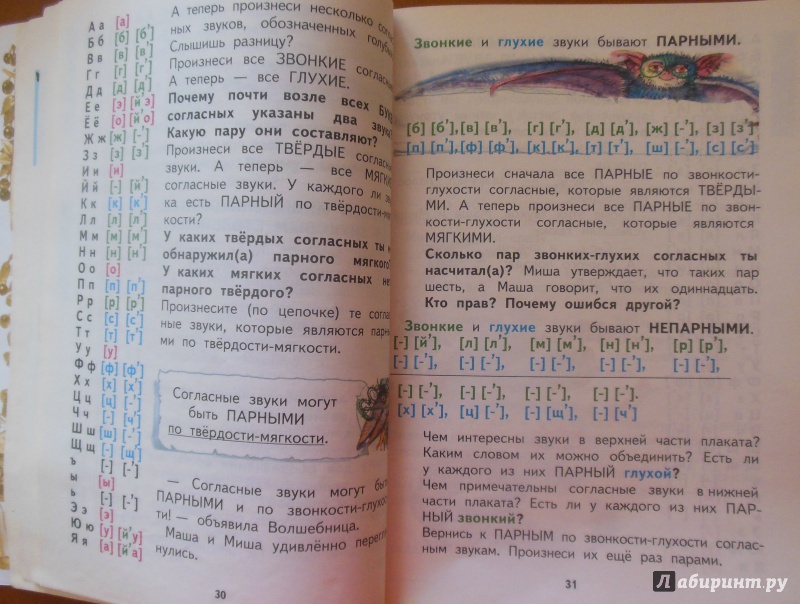 Аа [а]
Бб [б] [б']
Вв [в] [в']
Гг [г] [г']
Дд [д] [д']
Ее [э] [й'э]
Ёё [о] [й'о]
Жж [ж] [-']
Зз [з] [з']
Ии [и]
Йй [-] [й']
Кк [к] [к']
Лл [л] [л']
Мм [м] [м']
Нн [н] [н']
Оо [о]
Пп [п] [п']
Рр [р] [р']
Сс [с] [с']
Тт [т] [т']
Уу [у]
Фф [ф] [ф']
Хх [х] [х']
Цц [ц] [-']
Чч [-] [ч']
Шш [ш] [-']
Щщ [-] [щ']
ъ [-] [-']
ы [ы]
ь [-] [-']
Ээ [э]
Юю [у] [й'у]
Яя [а] [й'а]
А теперь произнеси несколько
звуков, обозначенных
Слышишь разницу?
Произнеси все ЗВОНКИЕ
А теперь — все ГЛУХИЕ.
Почему почти возле всех
согласных указаны два
Какую пару они составляют?
Произнеси все ТВЁРДЫЕ
звуки. А теперь — все
согласные звуки. У каждого ли
ка есть ПАРНЫЙ по твёрдости-
кости?
У каких твёрдых согласных ты
обнаружил(а) парного мягкого?
У каких мягких согласных
парного твёрдого?
Произнесите (по цепочке) те
ные звуки, которые являются
ми по твёрдости-мягкости.
Согласные звуки могут
быть ПАРНЫМИ
по твёрдости-мягкости.
— Согласные звуки могут
ПАРНЫМИ и по звонкости-
ти! — объявила Волшебница.
Маша и Миша удивлённо
нулись.
30
Звонкие и глухие звуки бывают ПАРНЫМИ.
[б] [б'], [в] [в'], [г] [г'], [д] [д'], [ж] [-'], [з] [з']
[п] [п'], [ф] [ф'], [к] [к'], [т] [т'], [ш] [-'], [с] [с']
Произнеси сначала все ПАРНЫЕ по звонкости-
глухости согласные, которые являются ТВЁРДЫ-
МИ. А теперь произнеси все ПАРНЫЕ по звон-
кости-глухости согласные, которые являются
МЯГКИМИ.
Сколько пар звонких-глухих согласных ты
насчитал(а)? Миша утверждает, что таких пар
шесть, а Маша говорит, что их одиннадцать.
Кто прав? Почему ошибся другой?
Звонкие и глухие звуки бывают НЕПАРНЫМИ.
[-] [й'], [л] [л'], [м] [м'], [н] [н'], [р] [р'],
[-] [-'], [-] [-'], [-] [-'], [-] [-'], [-] [-'],
[-] [-'], [-] [-'], [-] [-'], [-] [-'].
[х] [х'], [ц] [-'], [-] [щ'], [-] [ч']
Чем интересны звуки в верхней части плаката?
Каким словом их можно объединить? Есть ли
у каждого из них ПАРНЫЙ глухой?
Чем примечательны согласные звуки в нижней
части плаката? Есть ли у каждого из них ПАР-
НЫЙ звонкий?
Вернись к ПАРНЫМ по звонкости-глухости соглас-
ным звукам. Произнеси их ещё раз парами.
31
Лабиринт.ру